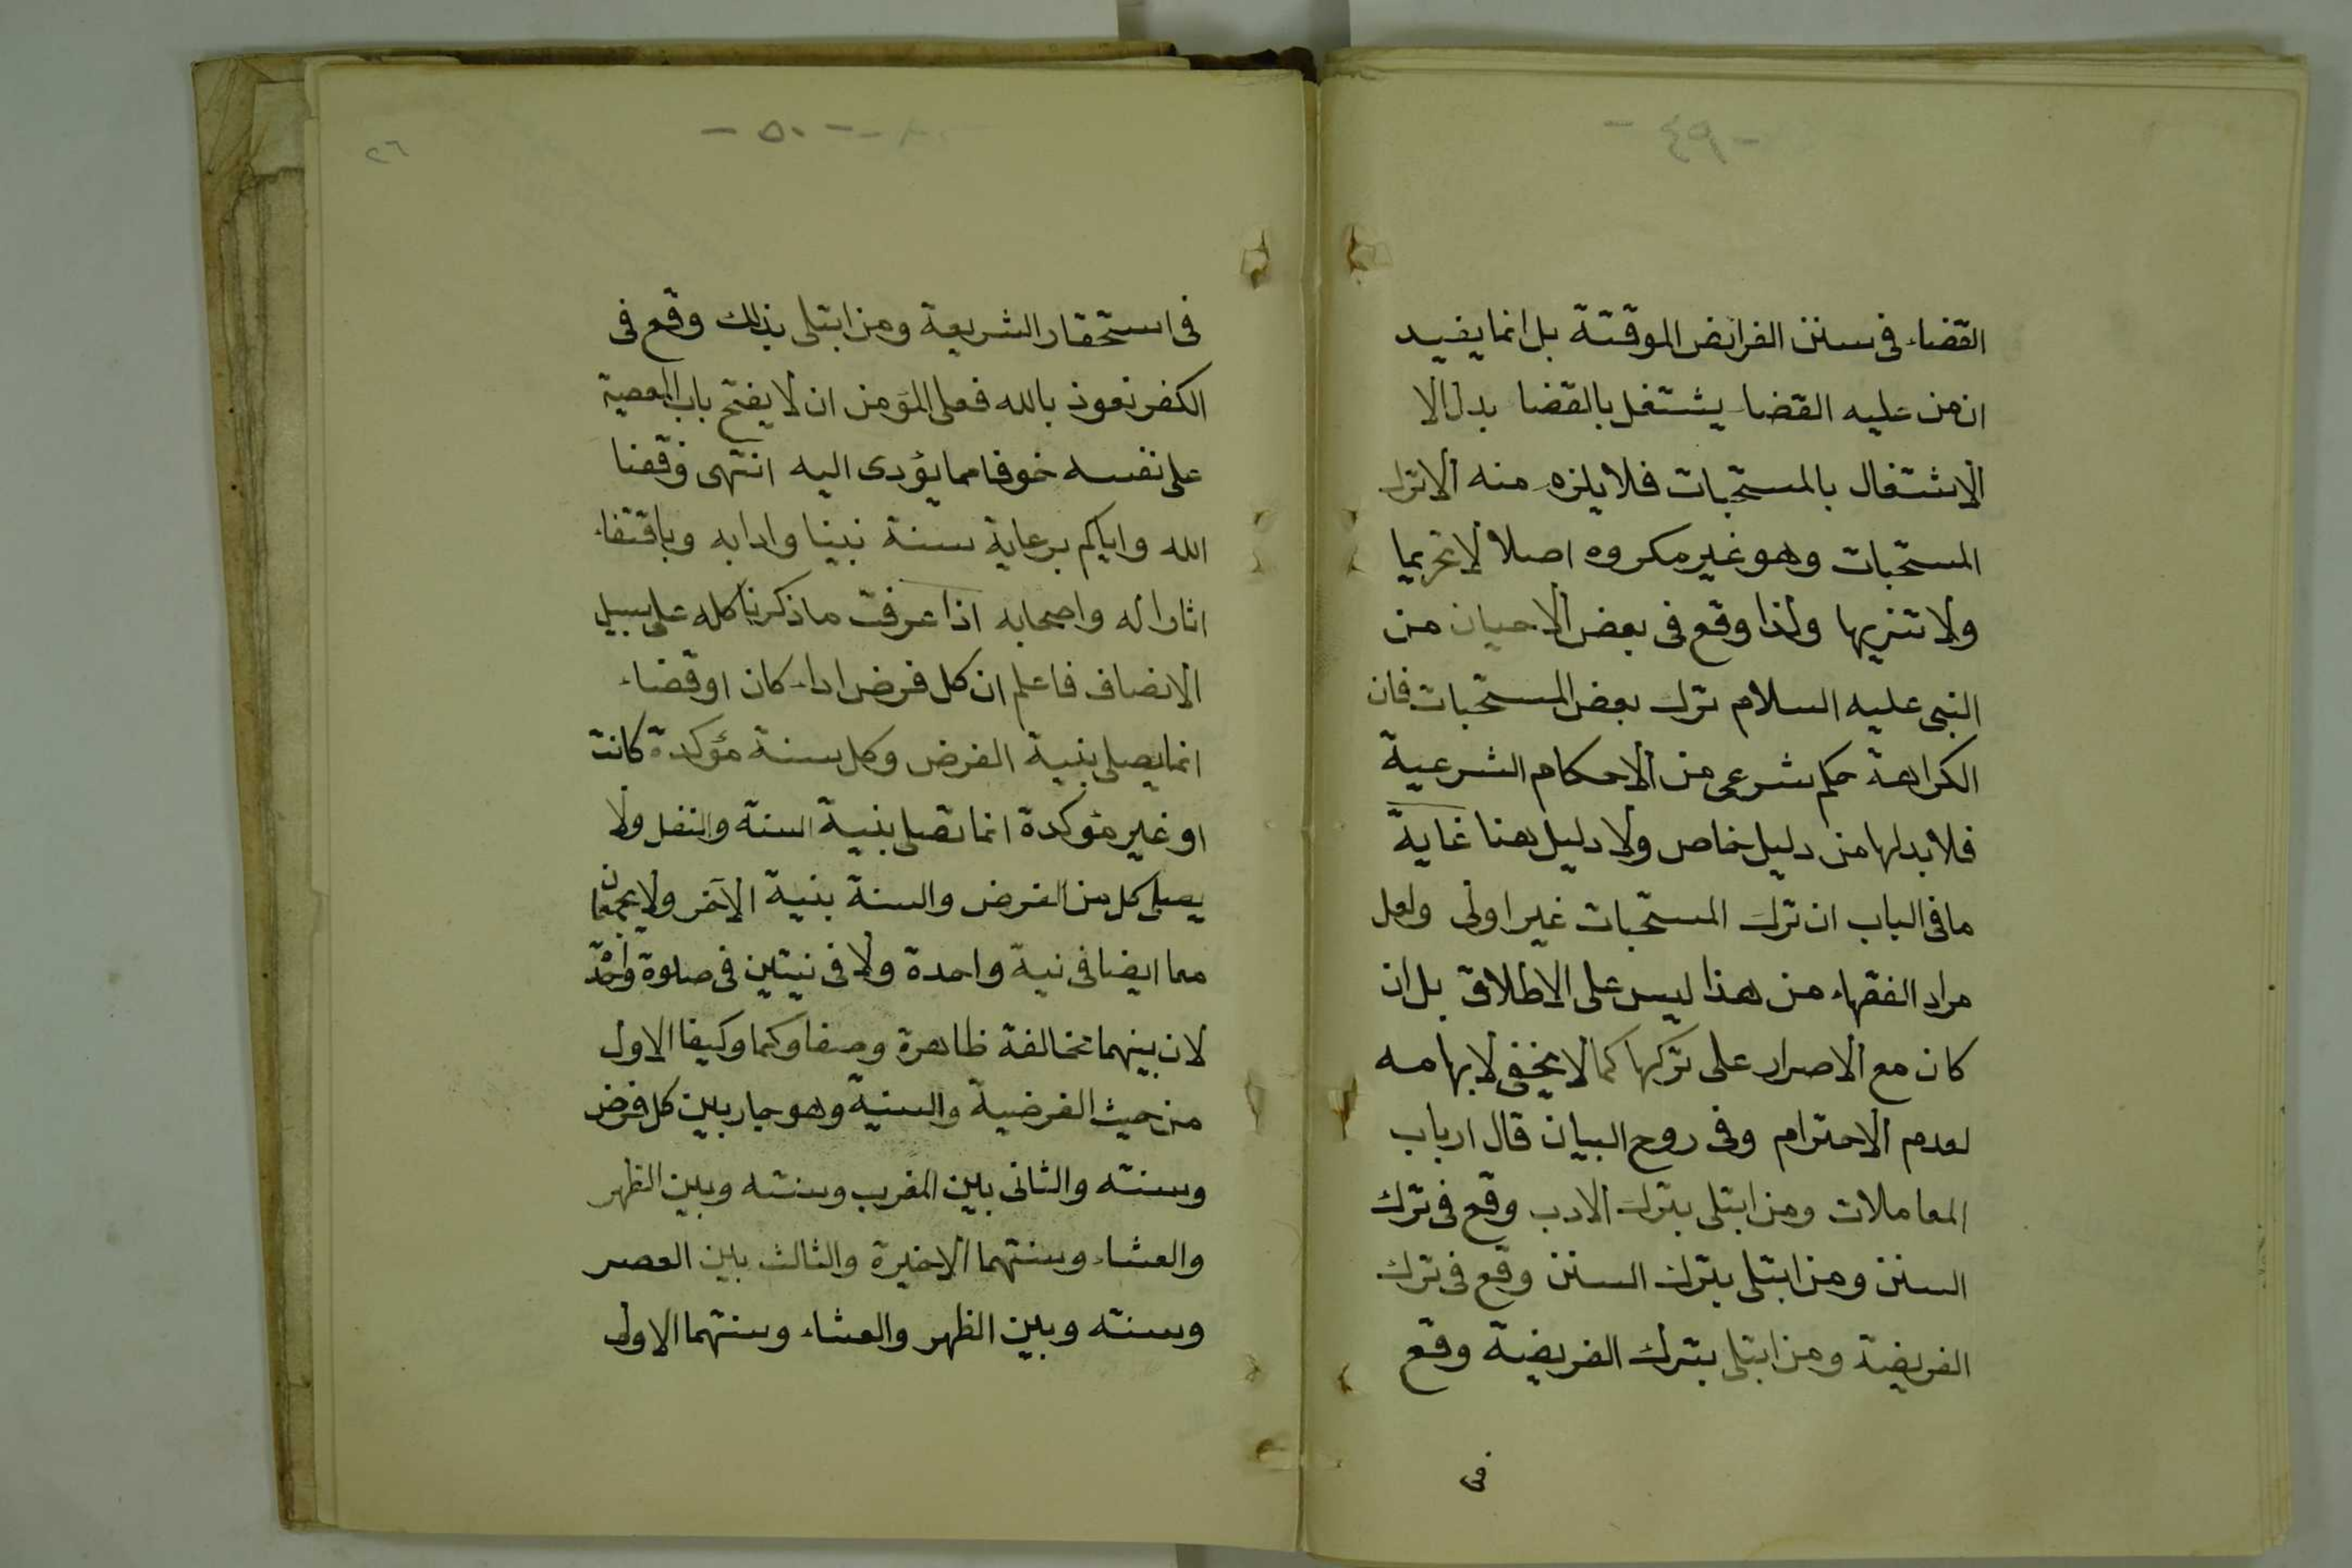 -٤٩-
القضاء فى سنن الفرائض الموقتة بل انما يفيد
ان من عليه القضا يشتغل بالقضا بدل الا
الاشتغال بالمستحبات فلا يلزم منه الا ترك
المستحبات وهو غير مكروه اصلا لا تحريما
ولا تنزيها ولذا وقع فى بعض الاحيان من
النبى عليه السلام ترك بعض المستحبات فان
الكراهة حكم شرعى من الاحكام الشرعية
فلا بد لها من دليل خاص ولا دليل هنا غاية
ما فى الباب ان ترك المستحبات غير اولى ولعل
مراد الفقهاء من هذا ليس على الاطلاق بل ان
كان مع الاصرار على تركها كما لا يخفى لابهامه
لعدم الاحترام وفى روح البيان قال ارباب
المعاملات ومن ابتلى بترك الادب وقع فى ترك
السنن ومن ابتلى بترك السنن وقع فى ترك
الفريضة ومن ابتلى بترك الفريضة وقع
فى
-٥٠-
٢٦
فى استحقار الشريعة ومن ابتلى بذلك وقع فى
الكفر نعوذ بالله فعلى المؤمن ان لا يفتح باب المعصية
على نفسه خوفا مما يؤدى اليه انتهى وفقنا
الله واياكم برعاية سنة نبينا وادابه وباقتفاء
اثار اله واصحابه اذا عرفت ما ذكرنا كله على سبيل
الانصاف فاعلم ان كل فرض اداء كان او قضاء
انما يصلى بنية الفرض وكل سنة مؤكدة كانت
او غير مؤكدة انما تصلى بنية السنة والنفل ولا
يصلى كل من الفرض والسنة بنية الآخر ولا يجمعان
معا ايضا فى نية واحدة ولا فى نيتين فى صلوة واحدة
لان بينهما مخالفة ظاهرة وصفا وكما وكيفا الاول
من حيث الفرضية والسنية وهو جار بين كل فرض
وسنته والثانى بين المغرب وسنته وبين الظهر
والعشاء وسنتهما الاخيرة والثالث بين العصر
وسنته وبين الظهر والعشاء وسنتهما الاولى